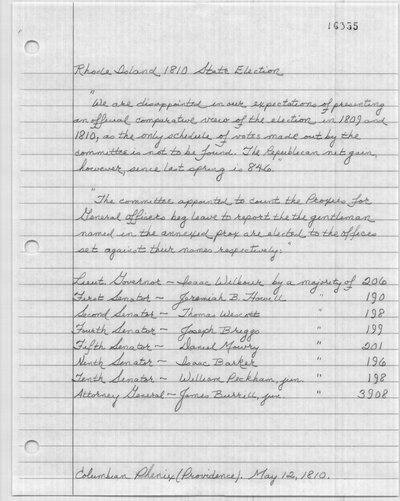 16355
Rhode Island 1810 State Election
"We are disappointed in our expectations of presenting
an official comparative view of the election in 1809 and
1810, as the only schedule of votes made out by the
committee is not to be found. The Republican net gain,
however, since last spring is 846.
"The committee appointed to count the Proxies for
General officers beg leave to report the the gentleman
named in the annexed prox are elected to the offices
set against their names respectively:"
Lieut Governor - Isaac Welbour by a majority of 206
First Senator - Jeremiah B. Howell " 190
Second Senator - Thomas Wescott " 198
Fourth Senator - Joseph Briggs " 199
Fifth Senator - Daniel Mowry " 201
Ninth Senator - Isaac Barker " 196
Tenth Senator - William Peckham, jun. " 198
Attorney General - James Burrill, jun " 3908
Columbian Phenix (Providence). May 12, 1810.